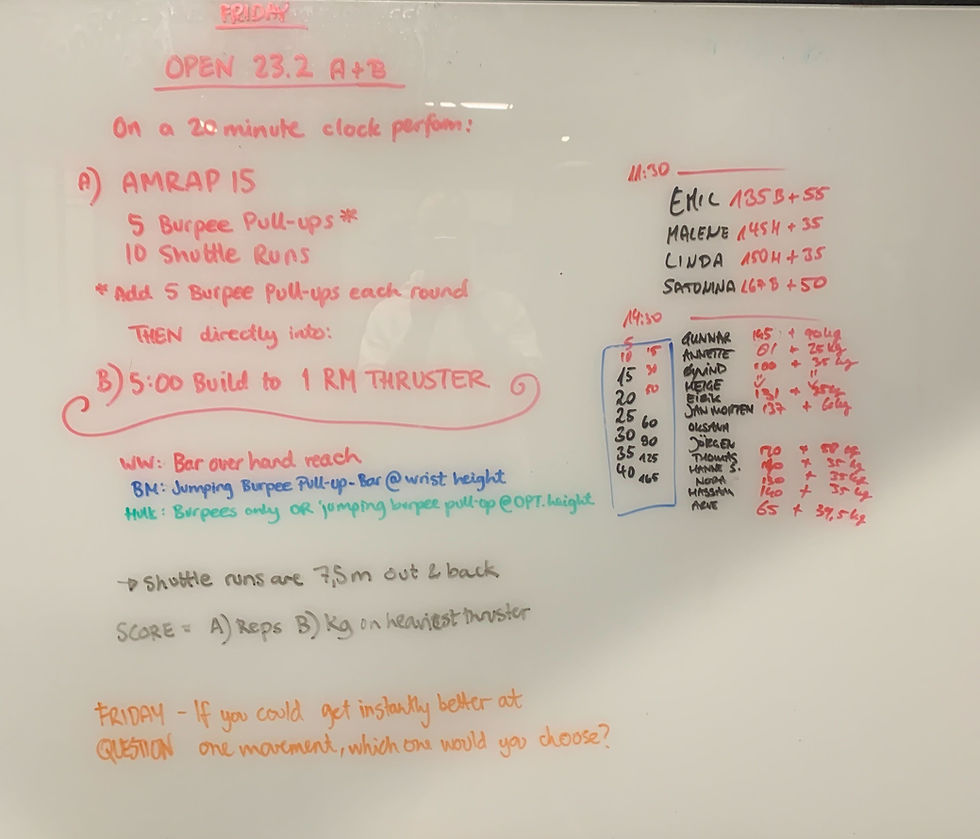 FRIDAY
OPEN 23.2 A+B
On a 20 minute clock perform:
A) AMRAP 15
5 Burpee Pull-ups*
10 Shuttle Runs
*Add 5 Burpee Pull-ups each round
THEN directly into:
B) 5:00 Build to 1 RM THRUSTER
WW: Bar over hand reach
BM: Jumping Burpee Pull-up-Bar @ wrist height
Hulk: Burpees only OR jumping burpee pull-up @OPT.height
→ Shuttle runs are 7,5m out & back
SCORE = A) Reps B) Kg on heaviest thruster
FRIDAY - If you could get instantly better at
QUESTION one movement, which one would you choose?
11:30
EMIL 135B + 55
MALENE 145H + 35
LINDA 150H + 35
SATOMINA 167B + 50
14:30
5
10 15
15 30
20 50
25 60
30 90
35 125
40 165
GUNNAR 145 + 90kg
ANNETTE 81 + 25kg
ØYVIND 100 + 35 kg
HEIGE
EIRIK 131 + kg
JAN MORTEN 137 + 60kg
OKSANA
JÖRGEN
THOMAS + kg
HANNE S. + 35 kg
NORA + 35 kg
HASSAN 140 + 35 kg
ARVE 65 + 39,5 kg